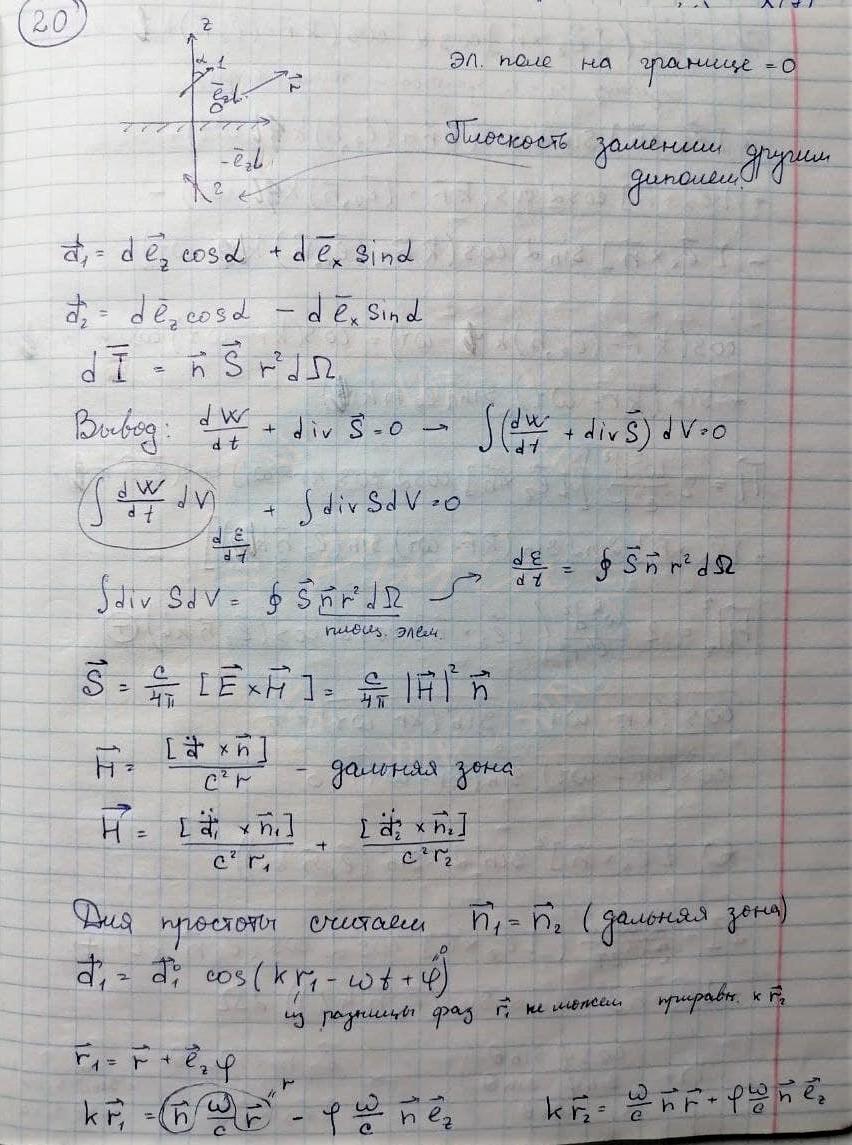 20
z
α 1
e⃗_z L
r⃗
0
-e⃗_z L
2
Эл. поле на границе = 0
Плоскость заменим другим
диполем
d⃗₁ = d e⃗_z cosα + d e⃗_x sinα
d⃗₂ = d e⃗_z cosα - d e⃗_x sinα
d I̅ = n⃗ S⃗ r² dΩ
Вывод: dW/dt + div S⃗ = 0 → ∫(dW/dt + div S⃗) dV = 0
∫ dW/dt dV + ∫ div S dV = 0
dε/dt
∫ div S dV = ∮ S⃗ n⃗ r² dΩ → dε/dt = ∮ S⃗ n⃗ r² dΩ
площ. элем.
S⃗ = c/4π [E⃗ × H⃗] = c/4π |H⃗|² n⃗
H⃗ = [d̈⃗ × n⃗]/c² r - дальняя зона
H⃗ = [d̈⃗₁ × n⃗₁]/c² r₁ + [d̈⃗₂ × n⃗₂]/c² r₂
Для простоты считаем n⃗₁ = n⃗₂ (дальняя зона)
d⃗₁ = d⃗₁⁰ cos(k r₁ - ωt + φ) " 0
из разницы фаз r⃗₁ не можем приравн. к r⃗₂
r⃗₁ = r⃗ + e⃗_z φ
k r⃗₁ = n⃗ ω/c r⃗ " r - φ ω/c n⃗ e⃗_z k r⃗₂ = ω/c n⃗ r⃗ + φ ω/c n⃗ e⃗_z